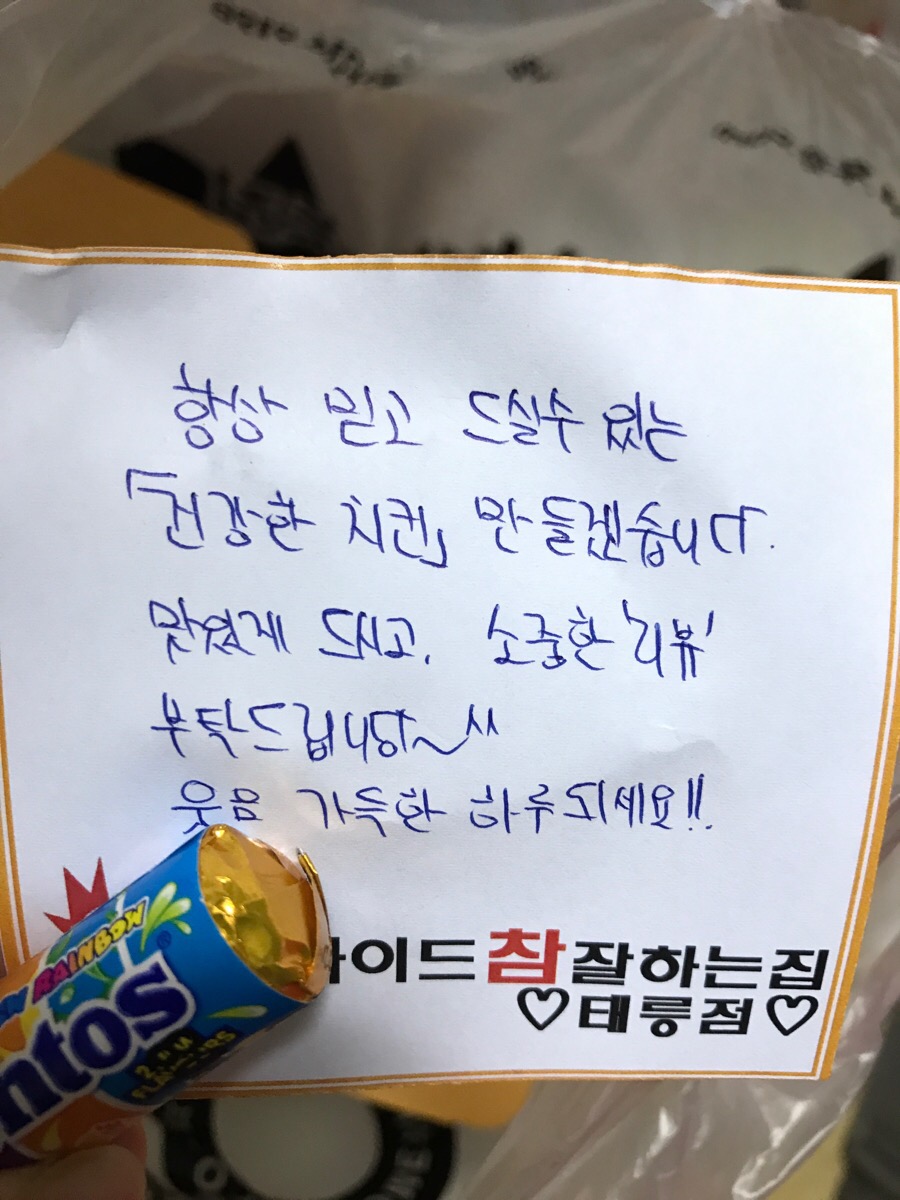 항상 믿고 드실수 있는
「건강한 치킨」 만들겠습니다.
맛있게 드시고, 소중한 '리뷰'
부탁드립니당~^^
웃음 가득한 하루되세요!!.
이드참잘하는집
♡태릉점♡
RAINBOW
ntos
FLAVORS